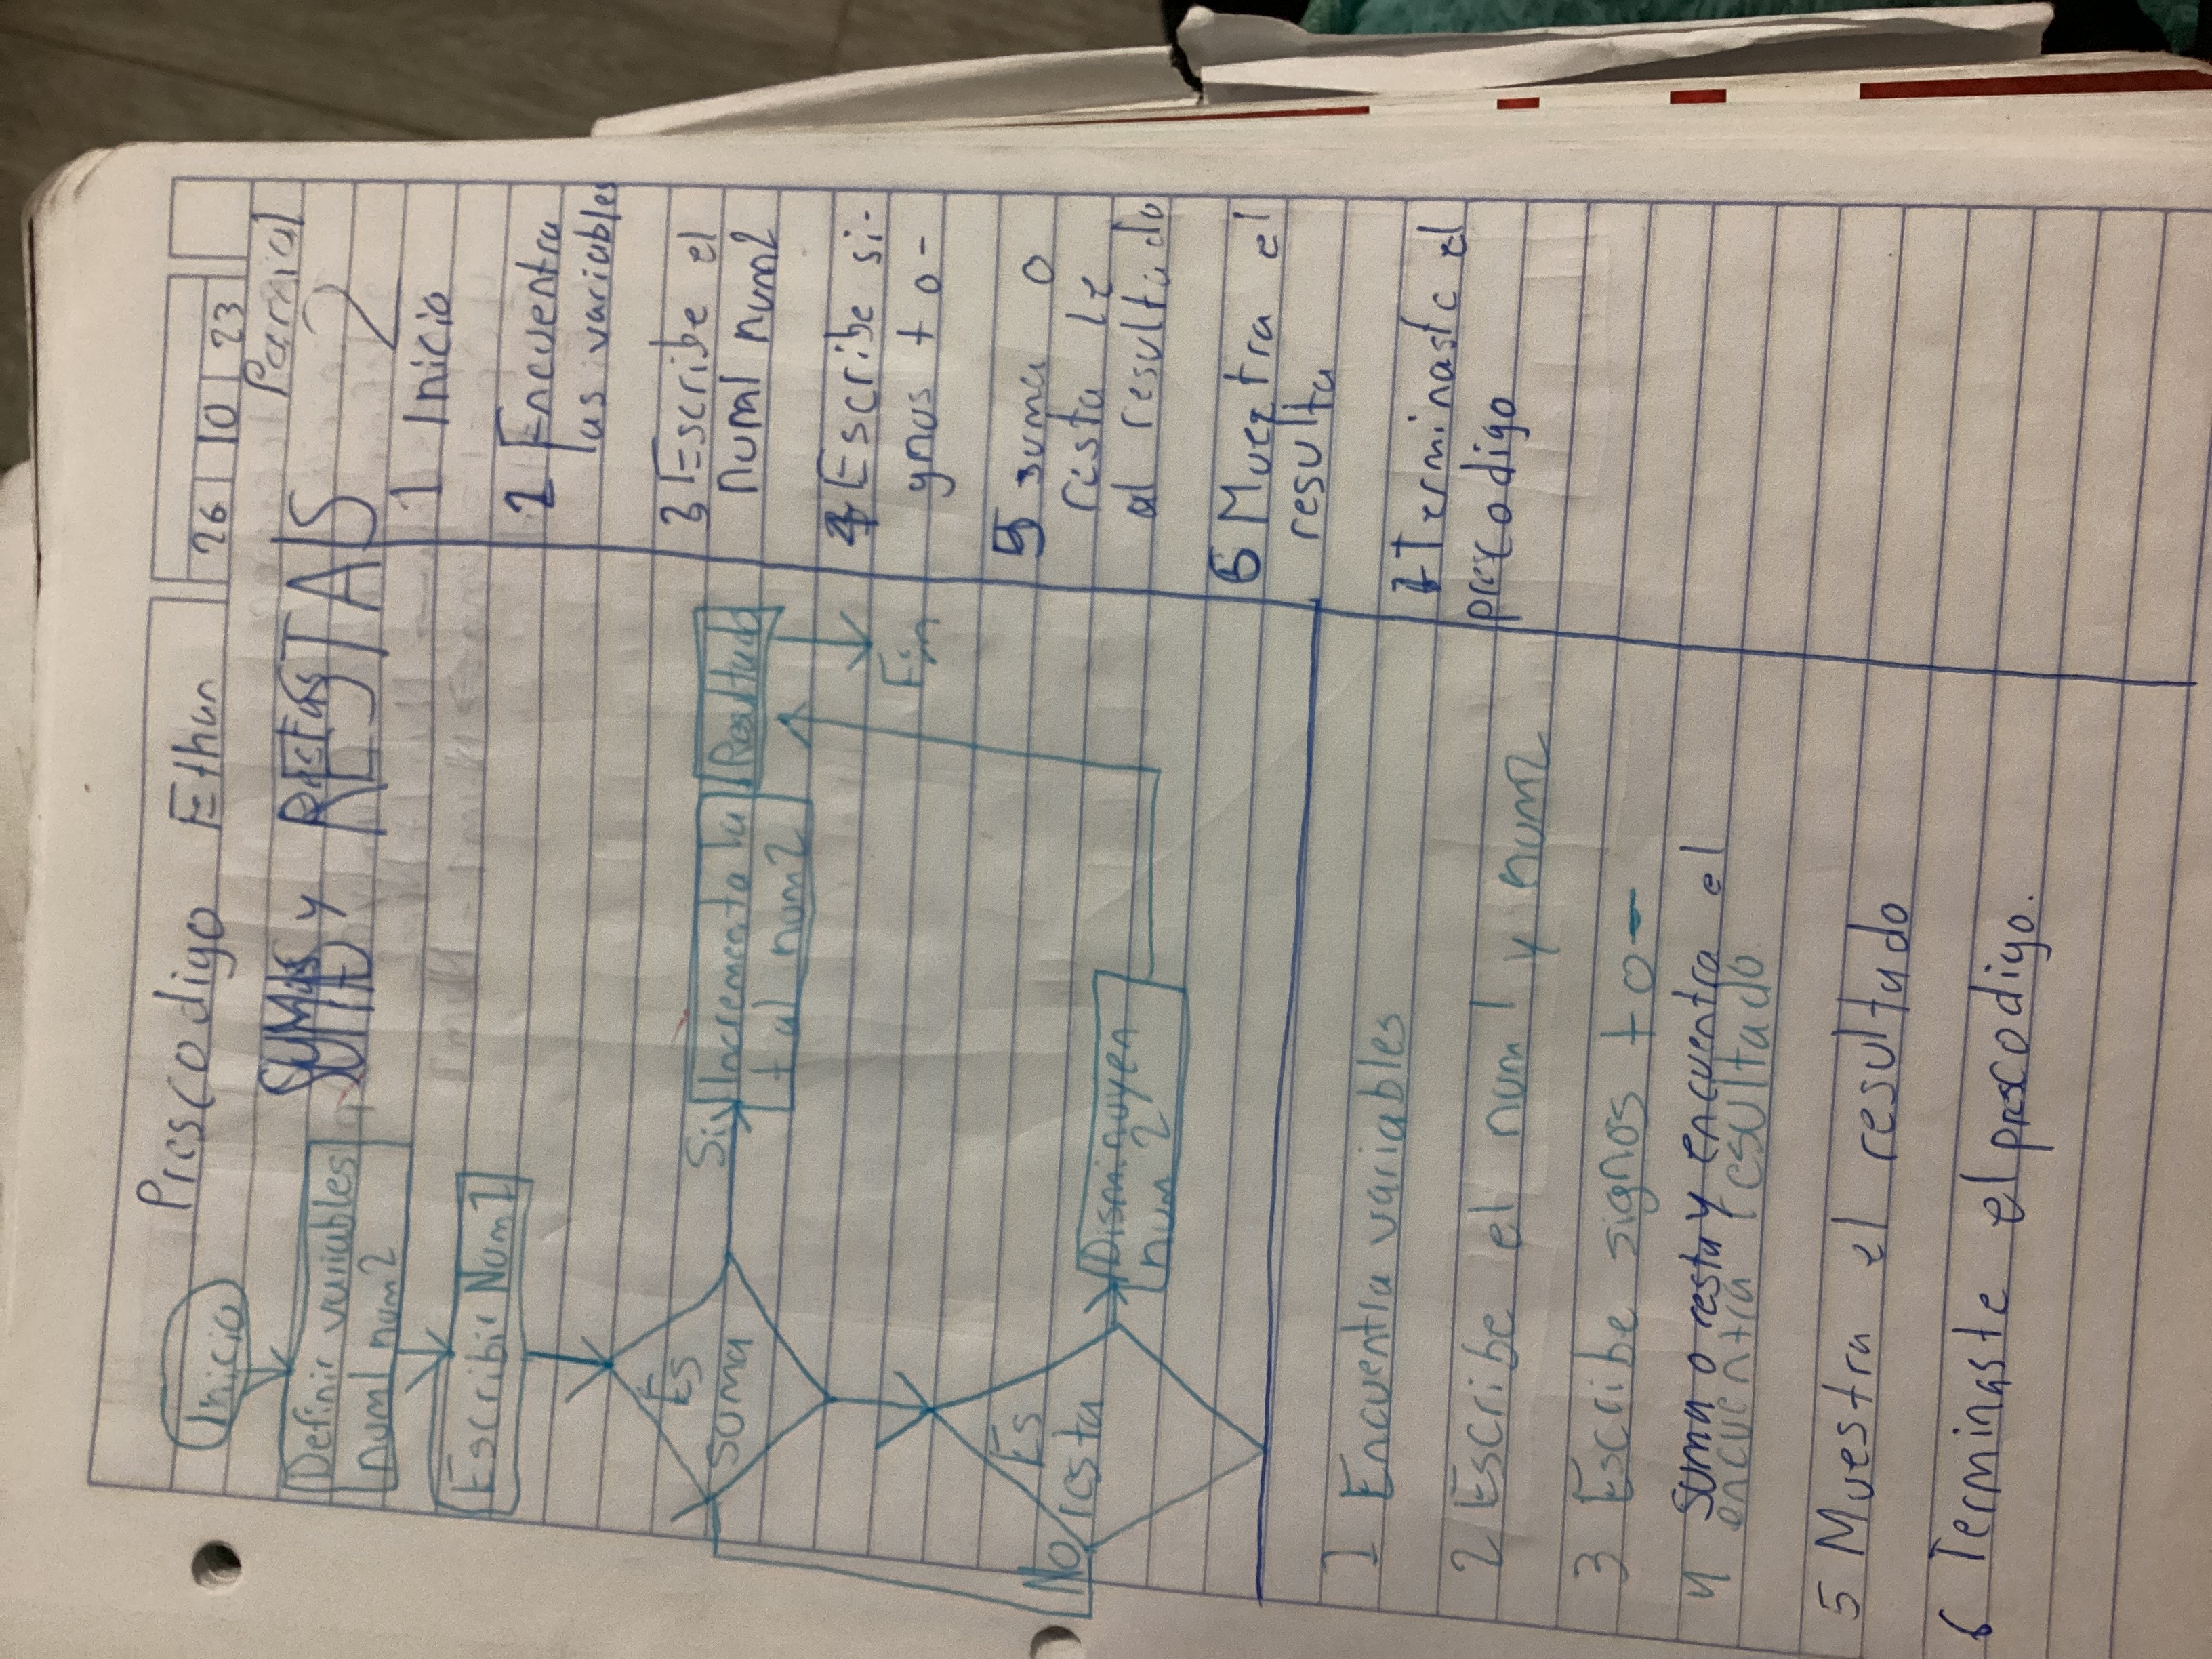 Prescodigo Ethan 26 10 23
Parcial
2
SUMAS y RESTAS
Inicio
Definir variables
num1 num2
Escribir Num1
Es
suma
Si
Incrementa la
t al num2
Resultado
Fin
Es
resta
No
Disminuyen
num 2
1 Inicio
2 Encuentra
las variables
3 Escribe el
num1 num2
4 Escribe si-
gnos + o -
5 suma o
resta le
al resultado
6 Muestra el
resulta
7 Terminaste el
prescodigo
1 Encuentra variables
2 Escribe el num 1 y num2
3 Escribe signos + o -
4 Suma o resta y encuentra el
encuentra resultado
5 Muestra el resultado
6 Terminaste el prescodigo.